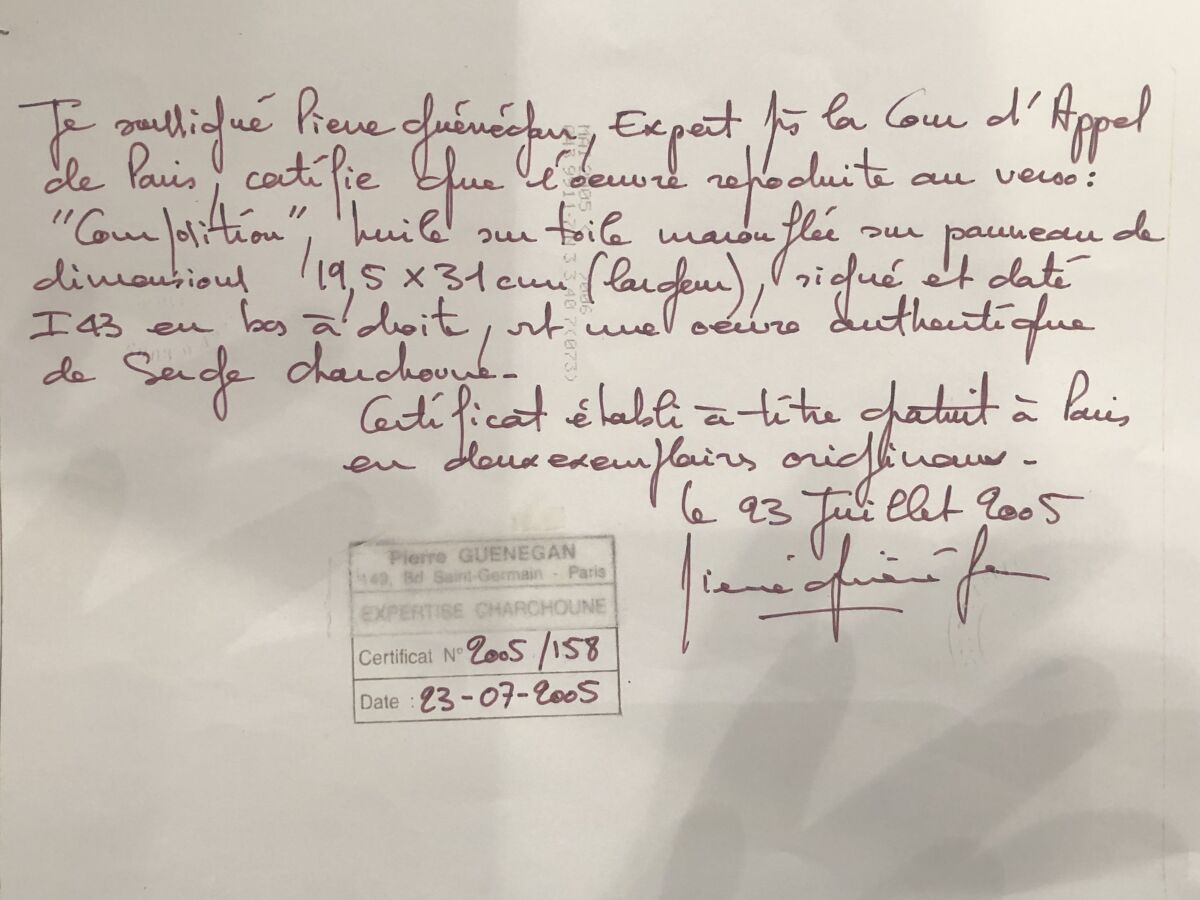 Je soussigné Pierre Guénégan, Expert près la Cour d'Appel
de Paris, certifie que l'oeuvre reproduite au verso:
"Composition", huile sur toile marouflée sur panneau de
dimensions 19,5 x 31 cm (largeur), signé et daté
I43 en bas à droite, est une oeuvre authentique
de Serge Charchoune-
Certificat établi à titre gratuit à Paris
en deux exemplaires originaux-
le 23 Juillet 2005
Pierre Guénégan
Pierre GUENEGAN
149, Bd Saint-Germain - Paris
EXPERTISE CHARCHOUNE
Certificat N° 2005/158
Date : 23-07-2005